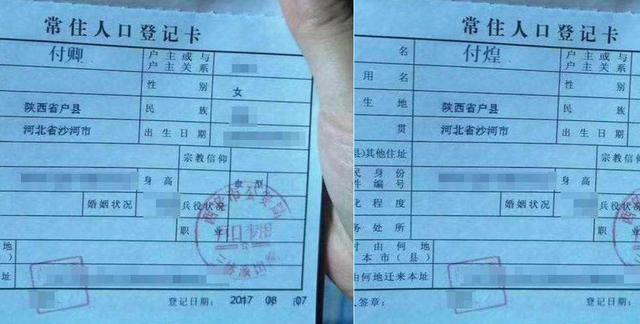 常住人口登记卡
付卿
户主或与
户主关系
性别
女
陕西省户县
民族
河北省沙河市
出生日期
宗教信仰
身高
血型
婚姻状况
兵役状况
职业
登记日期：
2017 08 07
常住人口登记卡
名
付煌
户主或与
户主关系
用名
性
生地
陕西省户县
民
贯
河北省沙河市
出生日
县)其他住址
宗教
民身份
件编号
身高
化程度
婚姻状况
兵役状况
务处所
职业
由何地
本市（县）
何地迁来本址
人签章：
登记日期：